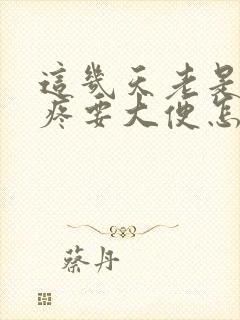 這幾天老是
疼要大便怎
蔡丹